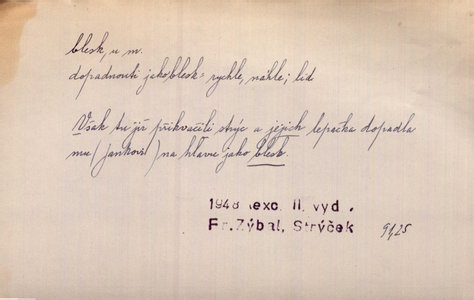 blesk, u m.
dopadnouti jako blesk = rychle, náhle; lid
Však tu již přikvačili strýc a jejich lepačka dopadla
mu (Jankovi) na hlavu jako blesk.
1948 exc. II. vyd.
Fr. Zýbal, Strýček 91,25